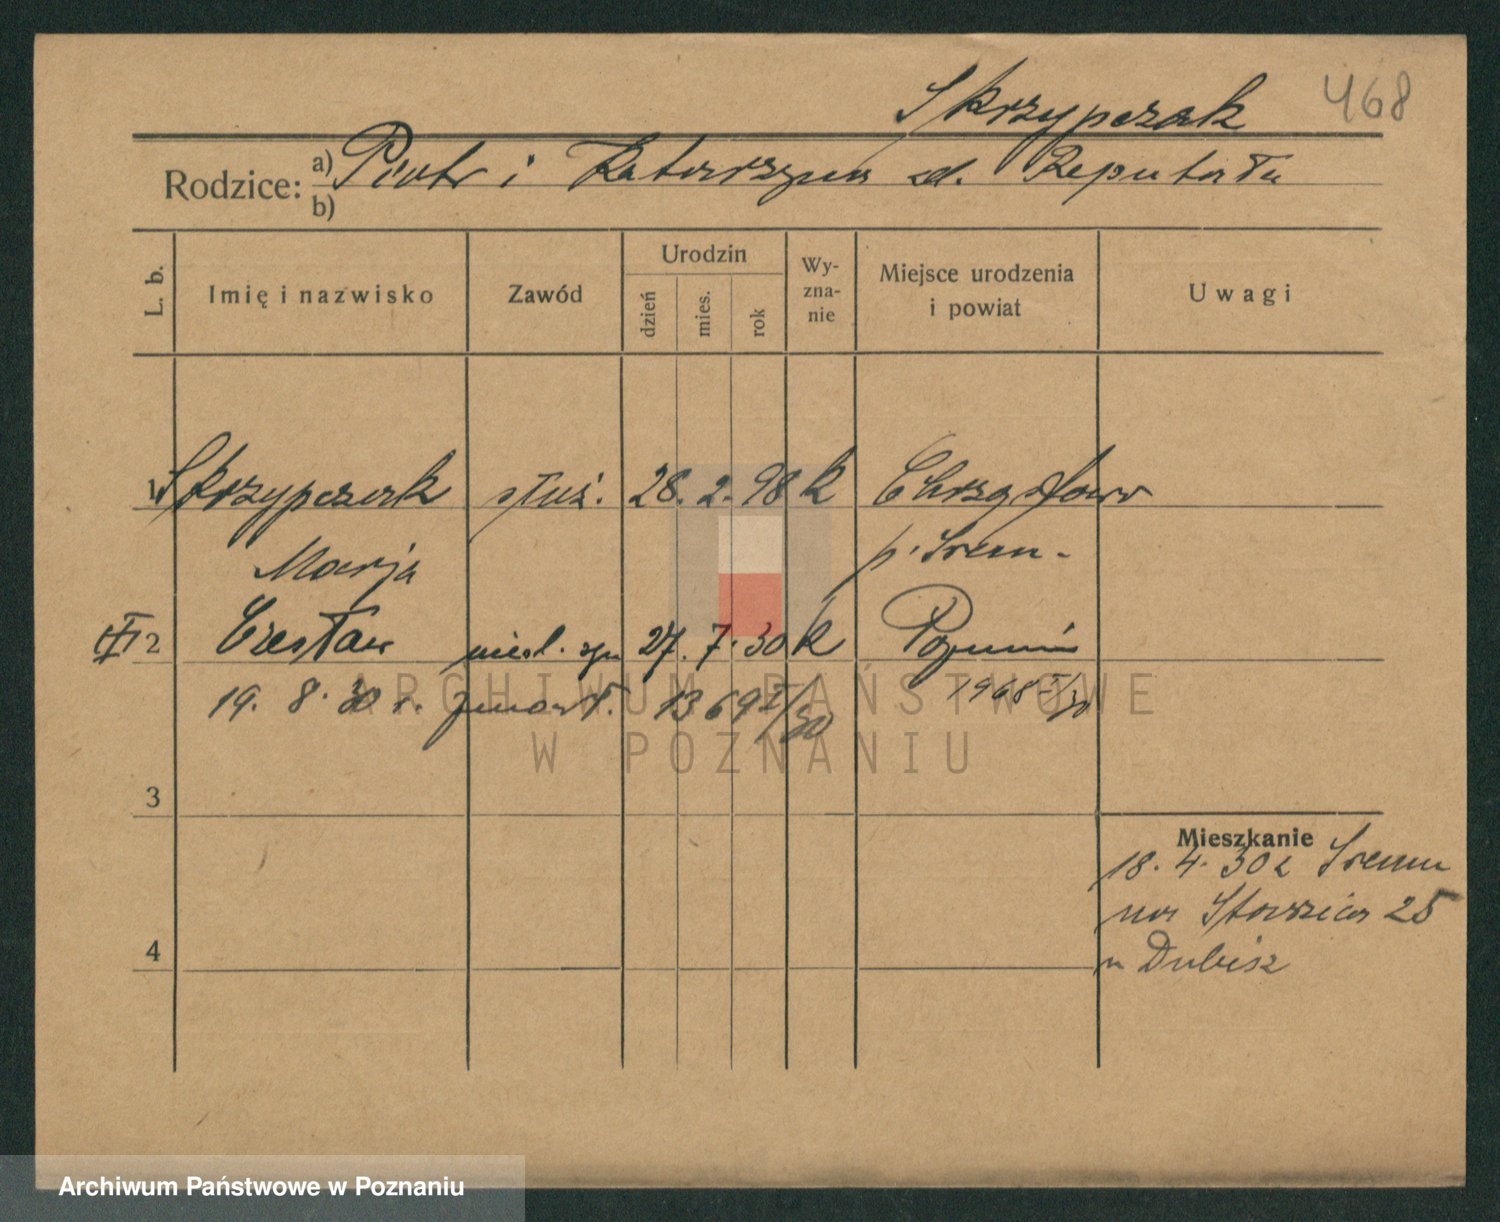 468
Skrzypczak
Rodzice: a) Piotr i Katarzyna zd. Reputała
b)
L. b. Imię i nazwisko Zawód Urodzin dzień mies. rok Wyznanie Miejsce urodzenia i powiat Uwagi
1 Skrzypczak służ. 28. 2. 98 k Chrząstowo
Marja p. Śrem
2 Czesław 27. 7. 30 k Poznań
19. 8. 30 r. zmarł. 1369 I/30 1968 I/30
ARCHIWUM PAŃSTWOWE
W POZNANIU
3
Mieszkanie
18. 4. 30 z Śremu
na Starzica 25
4 u Dubisz
Archiwum Państwowe w Poznaniu